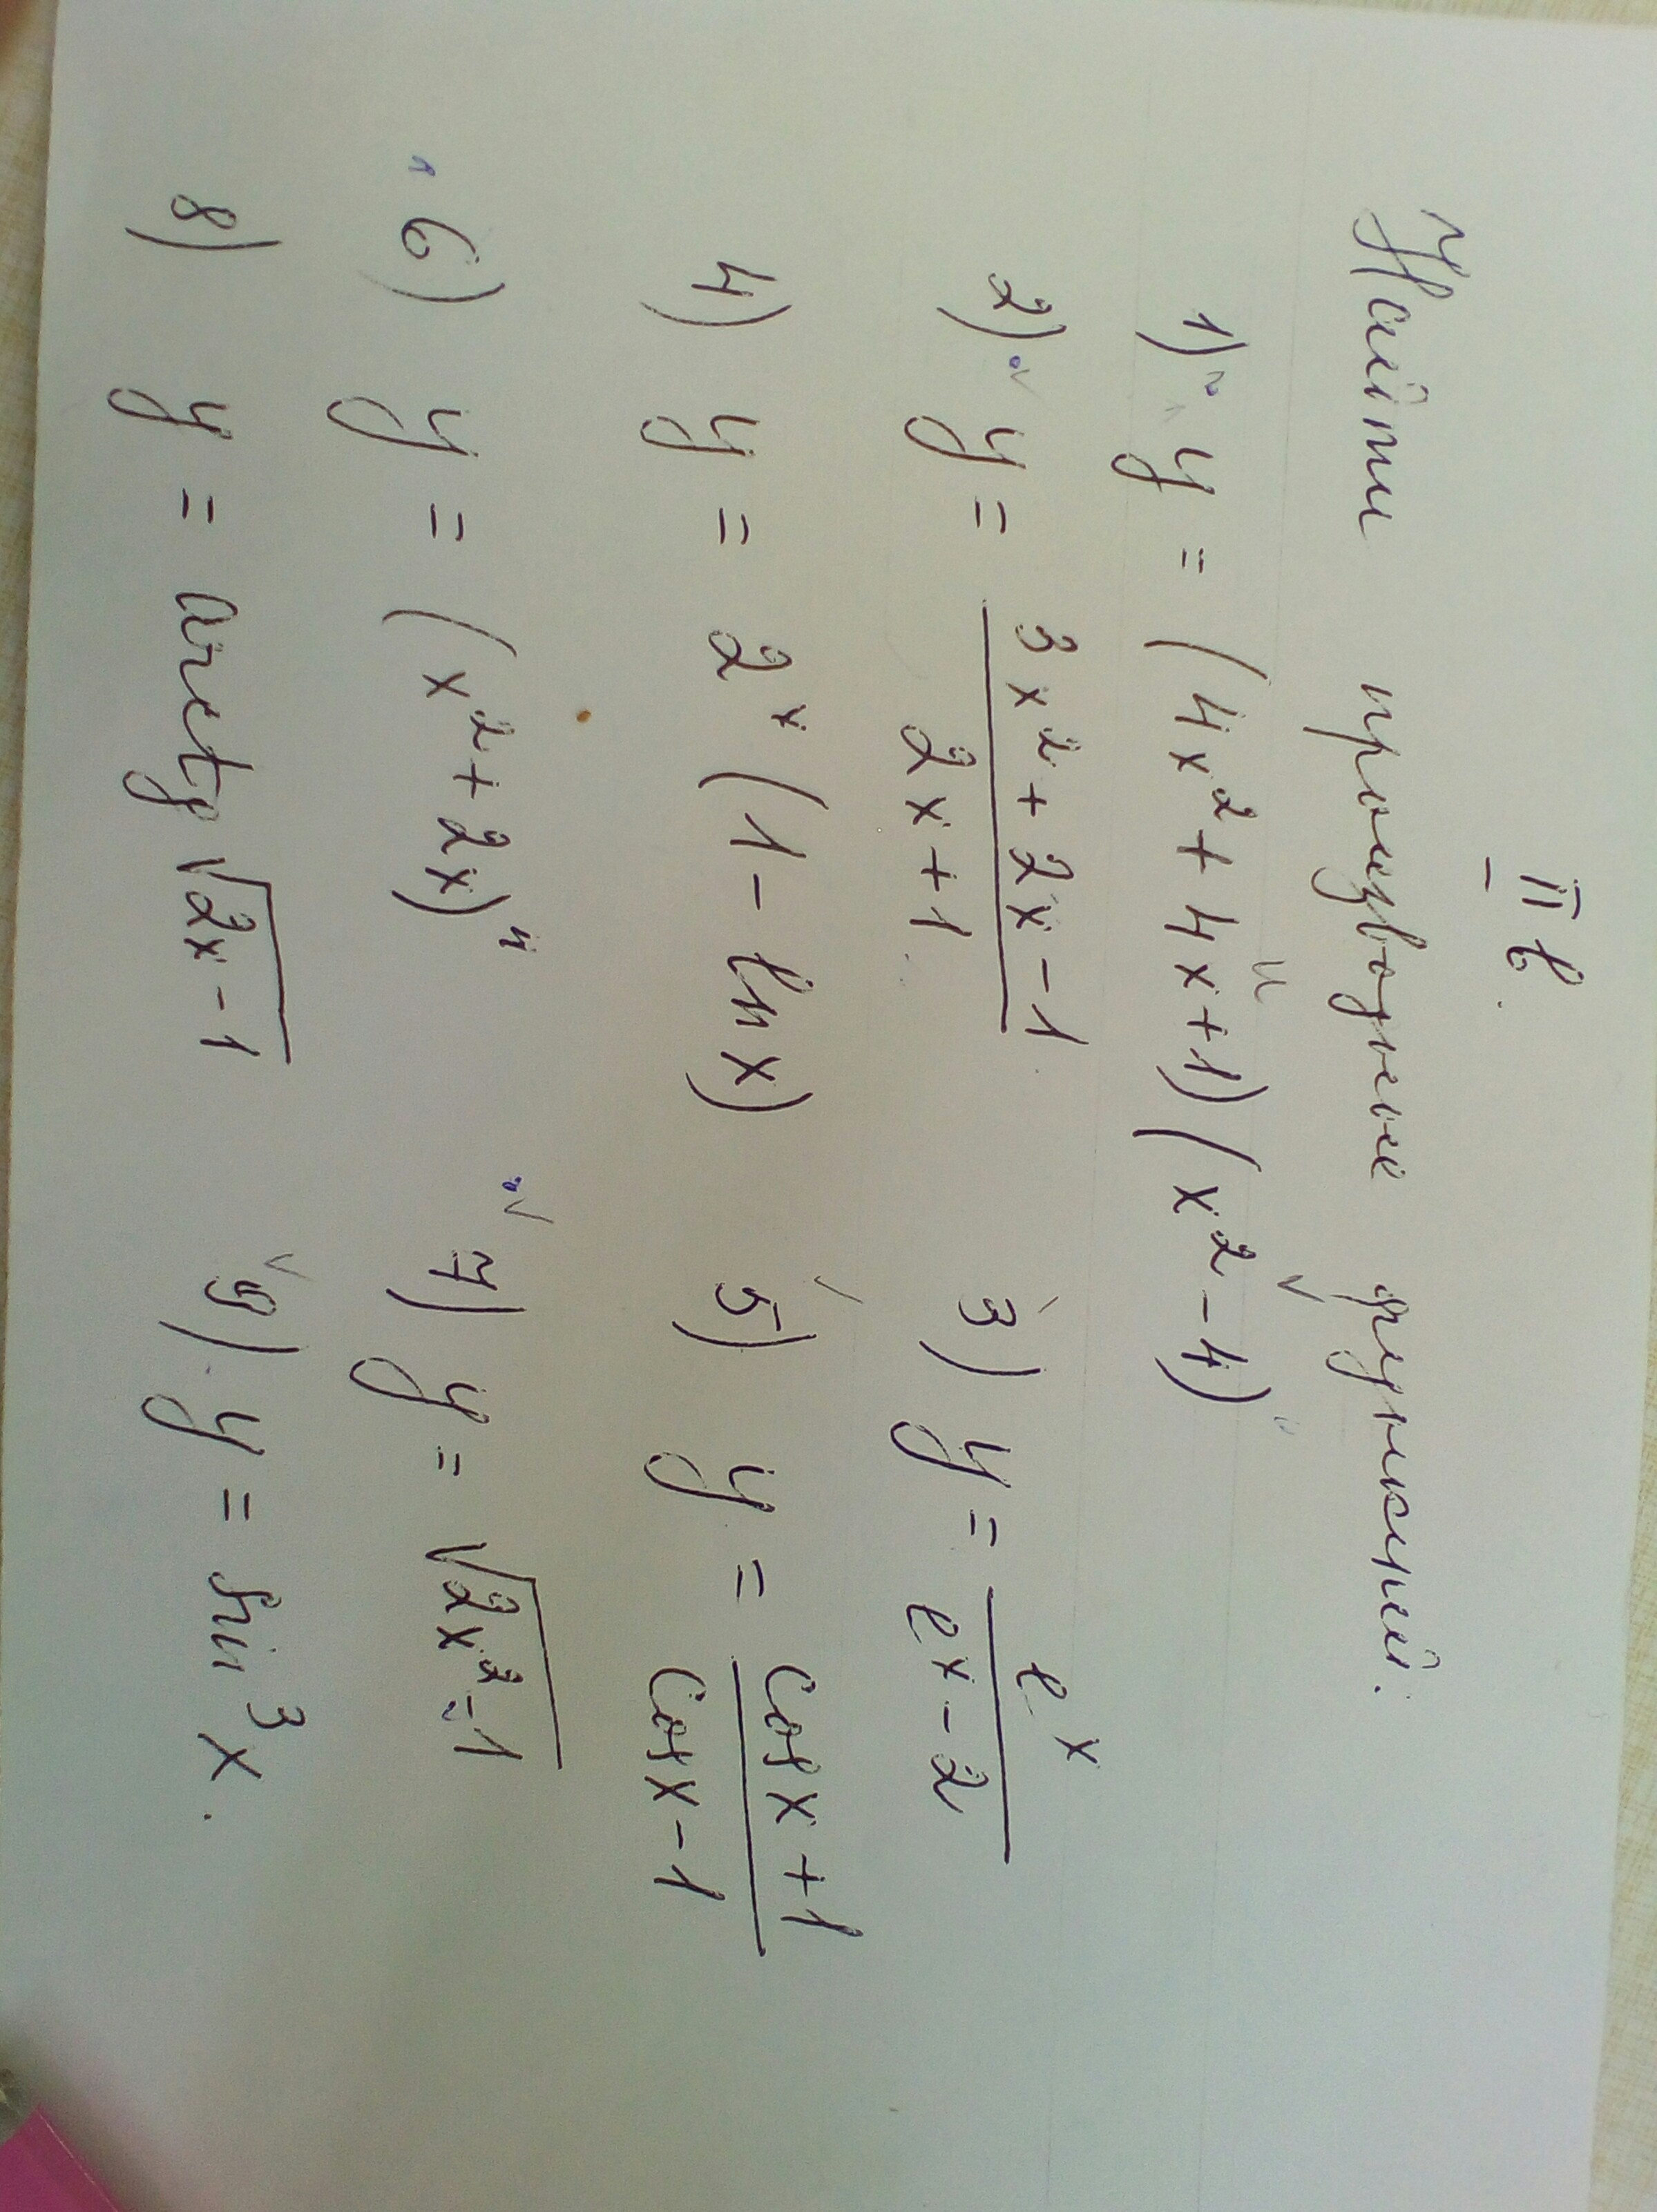 II в.
Найти производные функций.
1) y = (4x² + 4x + 1)(x² - 4)
2) y = (3x² + 2x - 1)/(2x + 1) 3) y = e^x/(e^x - 2)
4) y = 2^x (1 - ln x) 5) y = (cos x + 1)/(cos x - 1)
6) y = (x² + 2x)⁴ 7) y = √(2x² - 1)
8) y = arctg √(2x - 1) 9) y = sin³ x.